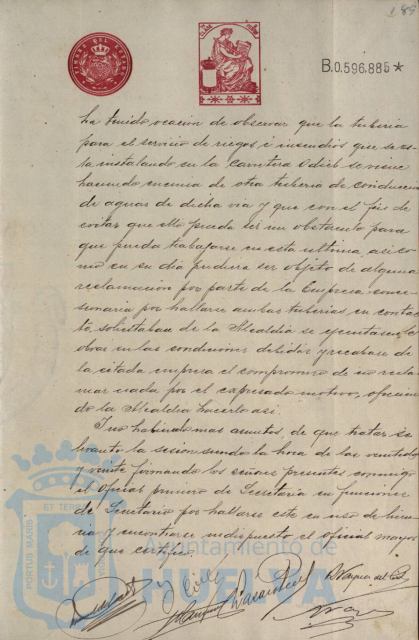 189
TIMBRE DEL ESTADO
B.0.596.885 *
ha tenido ocasion de observar que la tuberia
para el servicio de riegos é incendios que se es-
ta instalando en la Carretera Odiel se viene
haciendo encima de otra tuberia de conduccion
de aguas de dicha via y que con el fin de
evitar que ello pueda ser un obstaculo para
que pueda trabajarse en esta ultima, asi co-
mo en su dia pudiera ser objeto de alguna
reclamacion por parte de la Empresa conce-
sionaria por hallarse ambas tuberias en contac-
to, solicitaban de la Alcaldia se ejecuten las
obras en las condiciones debidas y recaben de
la citada empresa el compromiso de no recla-
mar nada por el expresado motivo, ofrecien-
do la Alcaldia hacerlo asi.
Y no habiendo mas asuntos, de que tratar se
levantó la sesion siendo la hora de las veintidos
y veinte firmando los señores presentes conmigo
el Oficial primero de Secretaria en funciones
de Secretario por hallarse este en uso de licen-
cia y encontrarse indispuesto el oficial mayor
de que certifico.
ET TERRÆ
PORTUS MARIS
Ayuntamiento de
HUELVA